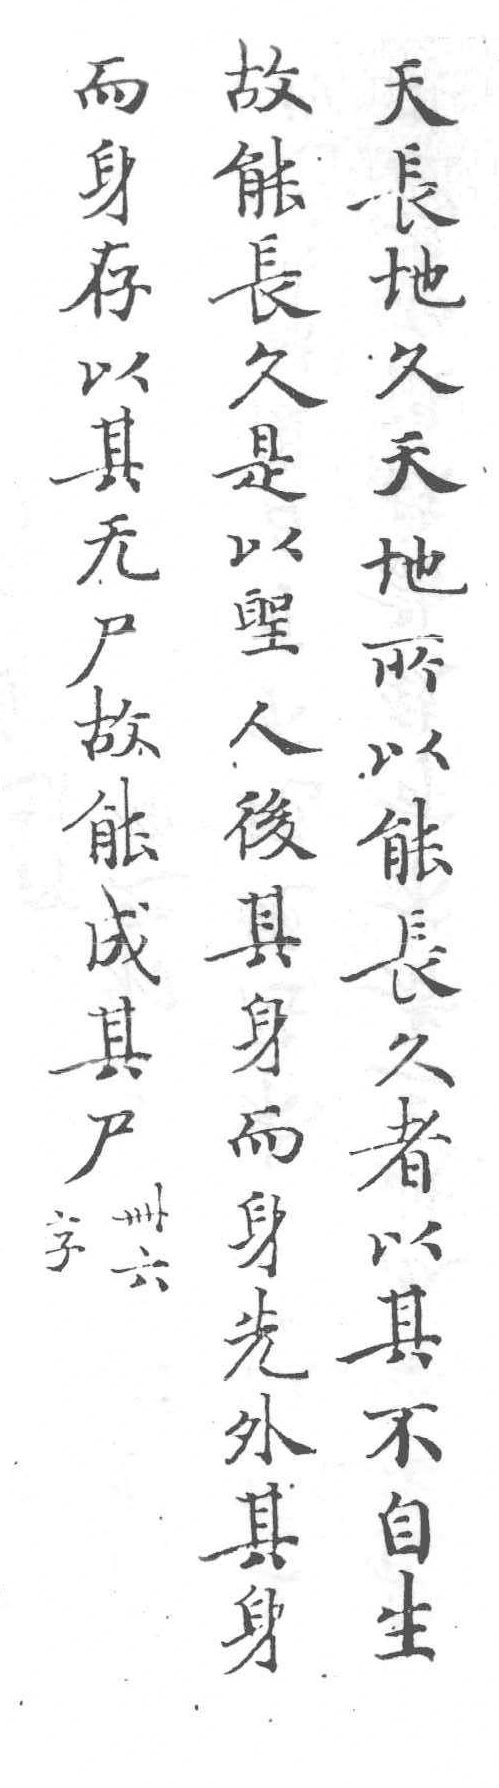 天長地久天地所以能長久者以其不自生
故能長久是以聖人後其身而身先外其身
而身存以其无尸故能成其尸
卌六
字